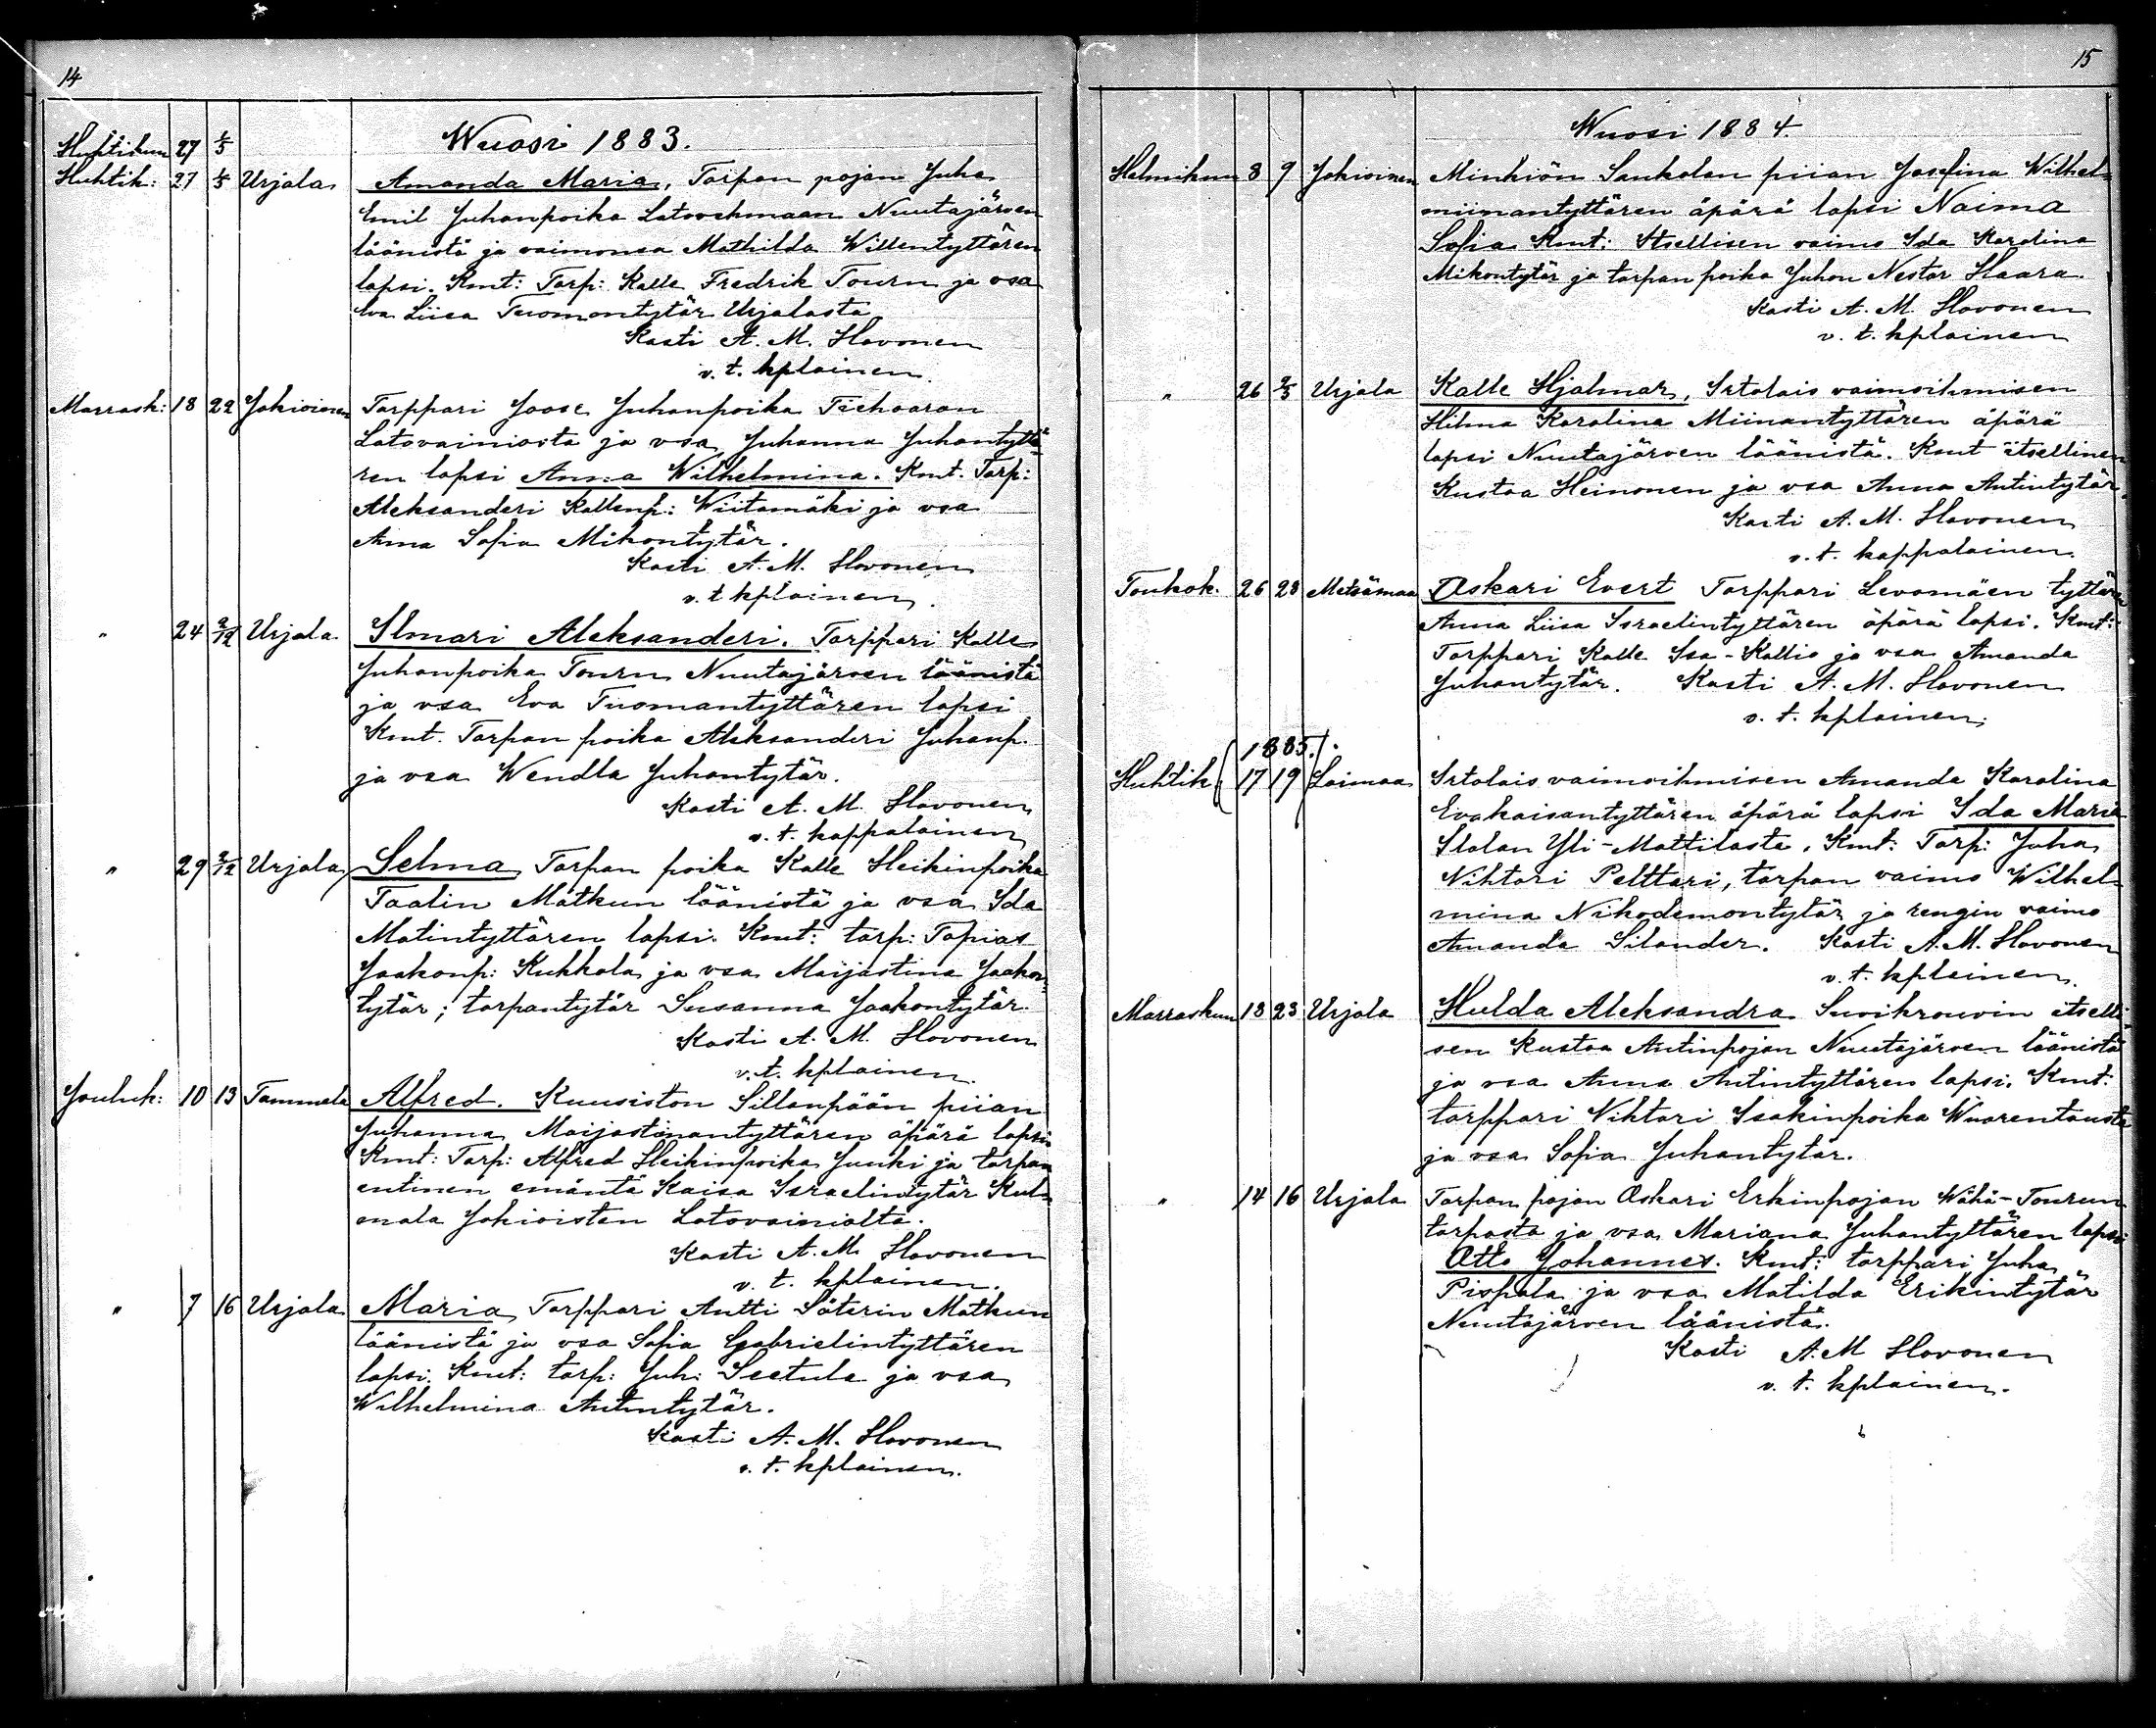 14
Wuosi 1883.
Huhtikun 27 1/5
Huhtik: 27 1/5 Urjala Amanda Maria, Torpan pojan Juha
Emil Juhanpoika Latovehmaan Nuutajärven
läänistä ja vaimonsa Mathilda Willentyttären
lapsi. Kmt: Torp: Kalle Fredrik Tourn ja vsa
Eva Liisa Tuomontytär Urjalasta
Kasti A. M. Hovonen
v. t. kplainen.
Marrask: 18 22 Jokioinen Torppari Joose Juhanpoika Tiehaaran
Latovainiosta ja vsa Juhanna Juhantyttä-
ren lapsi Anna Wilhelmina. Kmt. Torp:
Aleksanderi Kallenp: Wiitamäki ja vsa
Anna Sofia Mikontytär.
Kasti A. M. Hovonen
v. t kplainen.
" 24 2/12 Urjala. Ilmari Aleksanderi. Torppari Kalle
Juhanpoika Tourn Nuutajärven läänistä
ja vsa Eva Tuomantyttären lapsi
Kmt. Torpan poika Aleksanderi Juhanp.
ja vsa Wendla Juhantytär.
Kasti A. M. Hovonen
v. t. kappalainen
" 29 2/12 Urjala Selma Torpan poika Kalle Heikinpoika
Taalin Matkun läänistä ja vsa Ida
Matintyttären lapsi. Kmt: torp: Topias
Jaakonp: Kukkola ja vsa Maijastina Jaakon-
tytär; torpantytär Susanna Jaakontytär.
Kasti A. M. Hovonen
v. t. kplainen.
Jouluk: 10 13 Tammela Alfred. Kuusiston Sillanpään piian
Juhanna Maijastinantyttären äpärä lapsi.
Kmt: Torp: Alfred Heikinpoika Juuki ja torpan
entinen emäntä Kaisa Israelintytär Kul-
mala Jokioisten Latovainiolta.
Kasti A. M. Hovonen
v. t. kplainen.
" 7 16 Urjala. Maria Torppari Antti Säterin Matkun
läänistä ja vsa Sofia Gabrielintyttären
lapsi. Kmt: torp: Juh: Seetula ja vsa
Wilhelmina Antintytär.
Kasti A. M. Hovonen
v. t. kplainen.
15
Wuosi 1884
Helmikun 8 9 Jokioinen Minkiön Sankolan piian Josefina Wilhel-
miinantyttären äpärä lapsi Naima
Sofia Kmt: Itsellisen vaimo Ida Karolina
Mikontytär ja torpan poika Juhon Nestor Haara.
Kasti A. M. Hovonen
v. t. kplainen
" 26 2/3 Urjala Kalle Hjalmar, Irtolais vaimoihmisen
Hilma Karolina Miinantyttären äpärä
lapsi Nuutajärven läänistä. Kmt itsellinen
Kustaa Heinonen ja vsa Anna Antintytär.
Kasti A. M. Hovonen
v. t. kappalainen.
Toukok. 26 28 Metsämaa Oskari Evert Torppari Levomäen tyttären
Anna Liisa Israelintyttären äpärä lapsi. Kmt:
Torppari Kalle Isa-Kallio ja vsa Amanda
Juhantytär. Kasti A. M. Hovonen
v. t. kplainen.
1885.
Huhtik 17 19 Loimaa Irtolais vaimoihmisen Amanda Karolina
Evakaisantyttären äpärä lapsi Ida Maria
Yli-Mattilasta. Kmt: Torp: Juha
Nihtori Pelttari, torpan vaimo Wilhel-
mina Nikodemontytär ja rengin vaimo
Amanda Silander. Kasti A. M. Hovonen
v. t. kplainen.
Marraskun 13 23 Urjala Hulda Aleksandra itselli-
sen Kustaa Antinpojan Nuutajärven läänistä
ja vsa Anna Antintyttären lapsi. Kmt:
torppari Vihtori Isakinpoika Wuorentausta
ja vsa Sofia Juhantytär.
" 14 16 Urjala Torpan pojan Oskari Erkinpojan Wähä-Tourun
torpasta ja vsa Mariana Juhantyttären lapsi
Otto Johannes. Kmt: torppari Juha
Pispala ja vsa Matilda Erikintytär
Nuutajärven läänistä.
Kasti A. M Hovonen
v. t. kplainen.